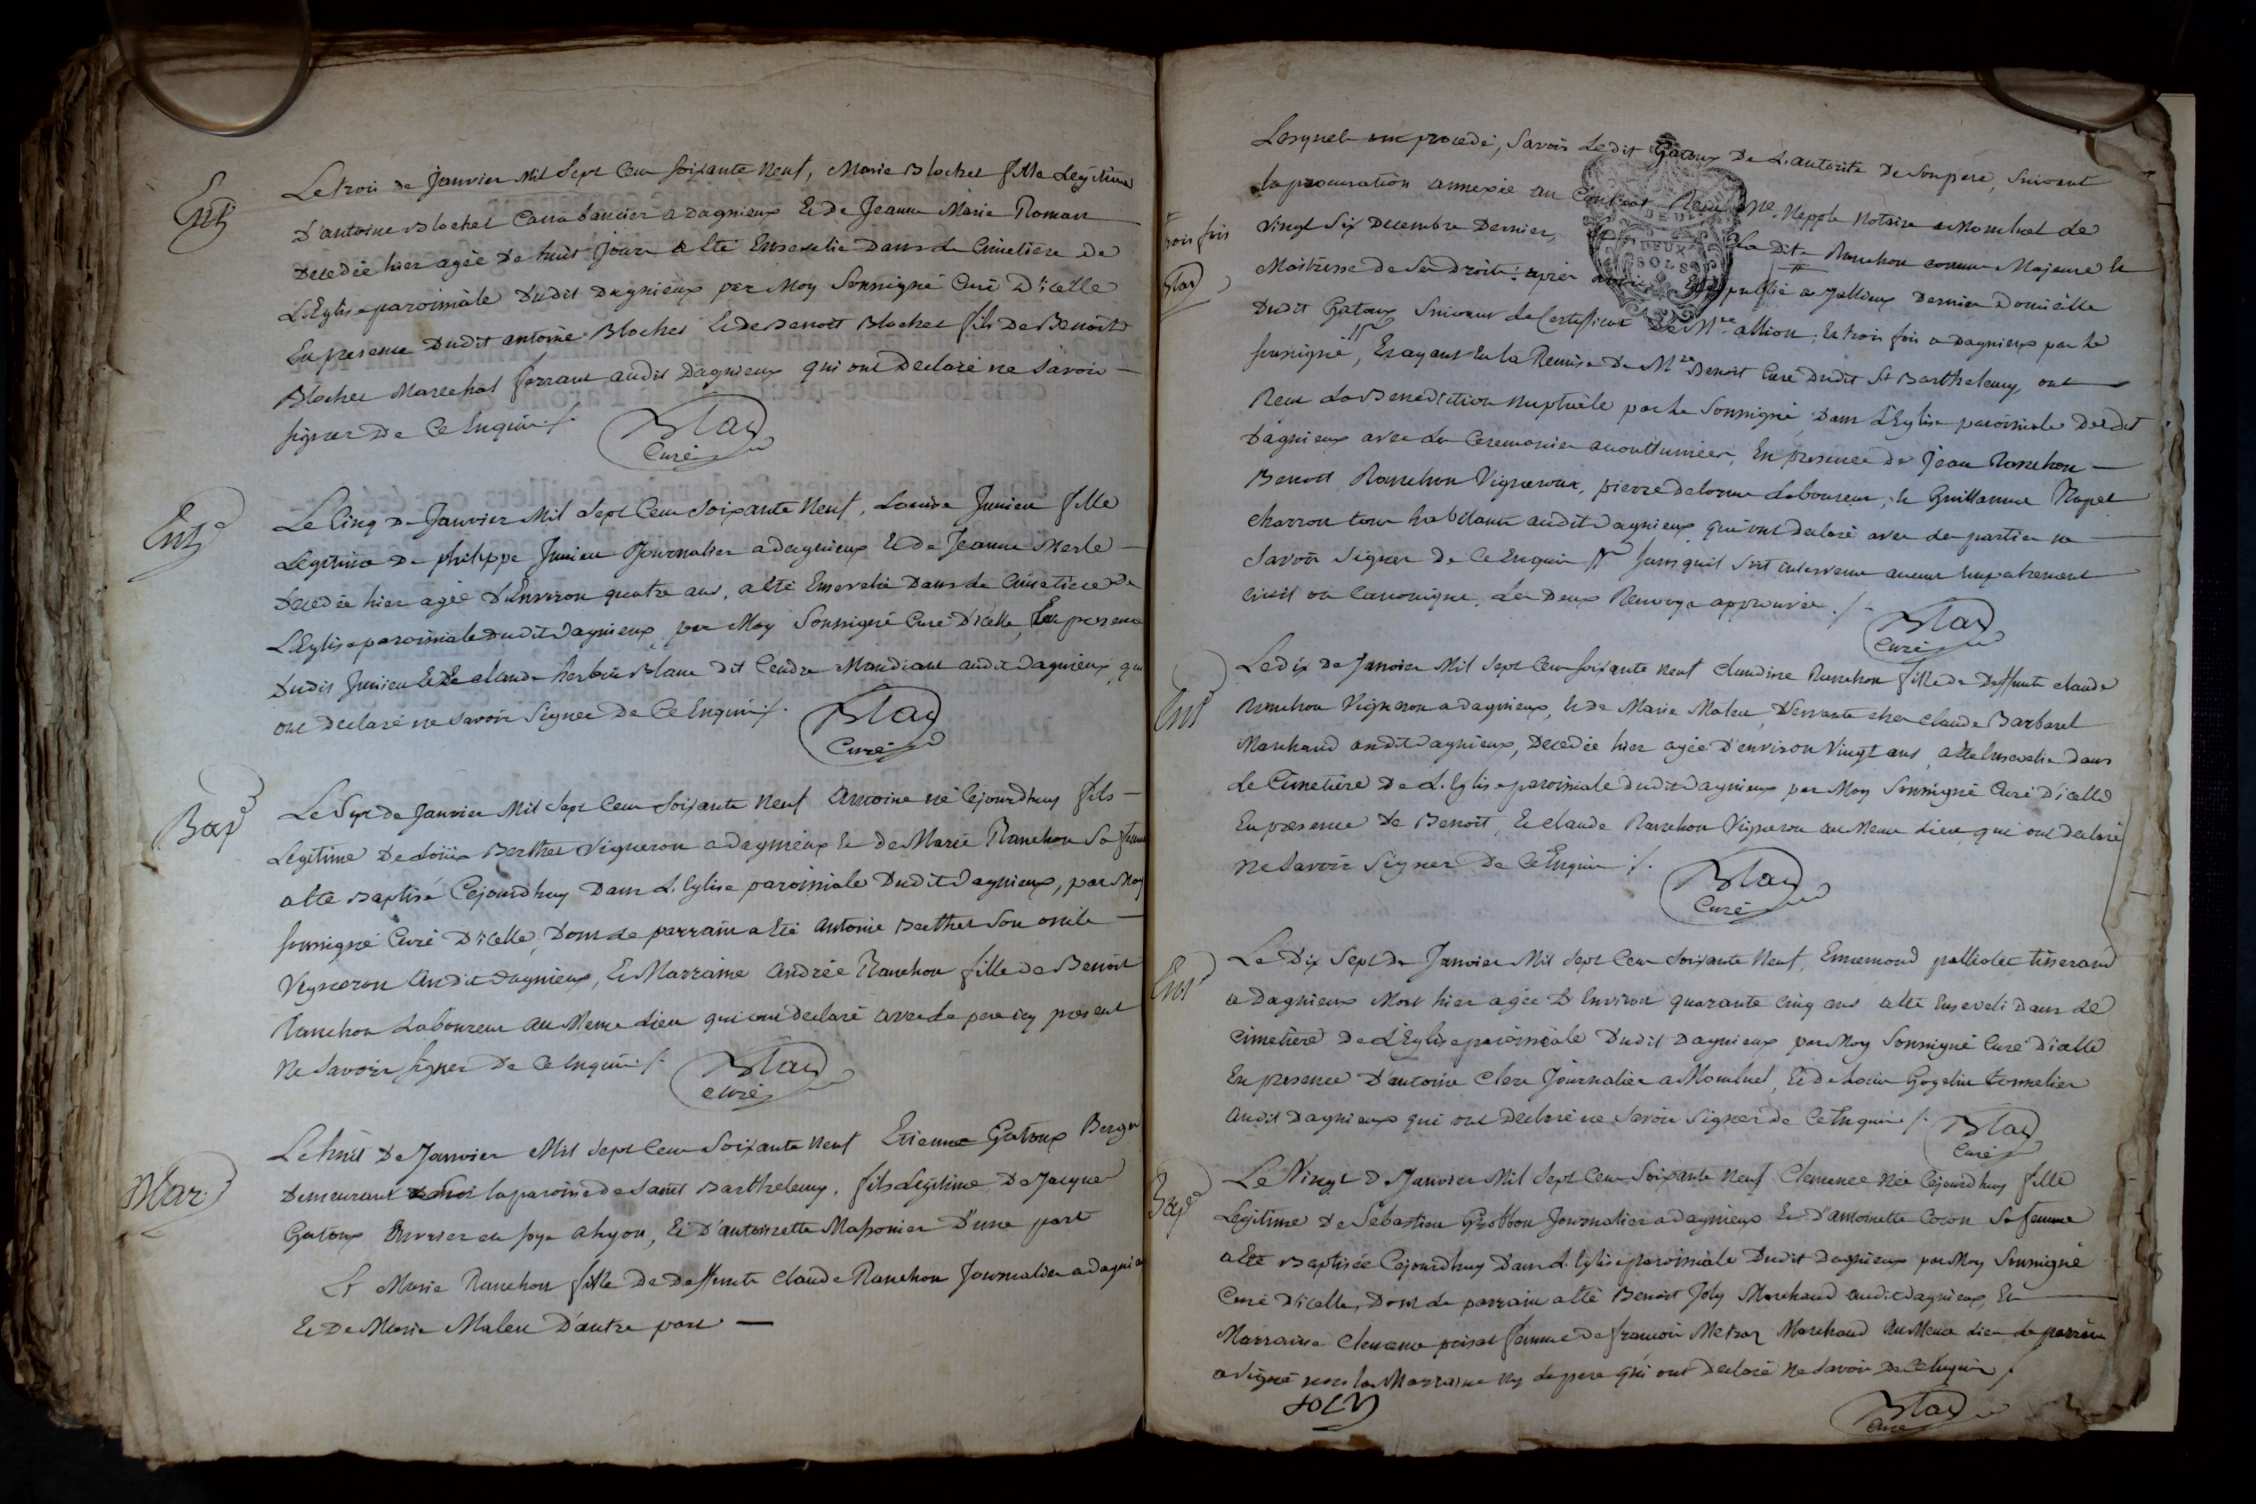 Ent
Le trois de Janvier mil sept cent soixante neuf, Marie Blochet fille Legitime
D'antoine Blochet Cabaretier a Dagnieux et de Jeanne Marie Roman
Decedée hier agée de huit jours a été Ensevelie Dans le Cimetiere de
L'Eglise paroissiale Dudit Dagnieux par Moy Soussigné Curé D'icelle
En presence Dudit antoine Blochet et de Benoit Blochet fils de Benoit
Blochet Marechal ferrant audit Dagnieux qui ont Declaré ne Savoir
signer De Ce Enquis ./.
Blad
Curé
Ent
Le Cinq De Janvier Mil Sept Cent Soixante Neuf, Louise Junieu fille
Legitime De philippe Junieu Journalier a dagnieux et de Jeanne Merle
Decedée hier agée D'Environ quatre ans, a été Ensevelie Dans le Cimetiere De
L'Eglise paroissiale Dudit Dagnieux par Moy Soussigné Curé D'icelle, En presence
Dudit Junieu et De claude Blanc dit Cendre Mandiant audit Dagnieux qui
ont Declaré ne Savoir Signer De Ce Enquis ./.
Blad
Curé
Bap
Le Sept de Janvier Mil Sept Cent Soixante Neuf Antoine né Cejourdhuy fils
Legitime De Loüis Berthet Vigneron a Dagnieux et de Marie Ranchon Sa femme
a été Baptisé Cejourdhuy Dans L'Eglise paroissiale Dudit Dagnieux, par Moy
soussigné Curé D'icelle, Dont le parrain a Eté Antoine Berthet Son oncle
Vigneron audit Dagnieux, et Marraine Andrée Ranchon fille de Benoit
Ranchon Laboureur au Meme Lieu qui ont declaré avec Le pere icy present
Ne Savoir signer De Ce Enquis ./.
Blad
Curé
Mar
Le huit De Janvier Mil Sept Cent Soixante Neuf Etienne Gatoux Berger
Demeurant la paroisse de Saint Barthelemy, fils Legitime De Jacques
Gatoux Ouvrier en soye a Lyon, et D'antoinette Massonier D'une part
Et Marie Ranchon fille De Deffunt Claude Ranchon Journalier a dagnieux
et De Marie Maleu D'autre part
Lesquels ont procedé, Savoir Ledit Gatoux De L'autorité De Son pere, Suivant
la procuration annexée au Contrat Reçu Me. Nepple Notaire a Montluel Le
Vingt Six Decembre Dernier, La Dite Ranchon comme Majeure et
Maitresse de Ses Droits: après avoir Eté publié a Jallieux Dernier Domicille
trois fois
Blad
Dudit Gatoux Suivant Le Certifficat De Mre. allion; et trois fois a Dagnieux par Le
soussigné, Et ayant Eu la Remise De Mre Benoit Curé Dudit St Barthelemy, ont
Reçu La Benediction Nuptiale par Le Soussigné Dans L'Eglise paroissiale Dudit
Dagnieux avec Les Ceremonies accouttumées, En presence de Jean Ranchon
Benoit Ranchon Vignerons, pierre delorme Laboureur, et Guillaume Rapet
charron tous habitants audit Dagnieux qui ont declaré avec Les parties ne
Savoir Signer De Ce Enquis sans qu'il Soit intervenu aucun Empechement
Civil ou Canonique. Les Deux Renvoys approuvés ./.
Blad
Curé
Ent
Le Dix De Janvier Mil Sept Cent Soixante Neuf Claudine Ranchon fille De Deffunt Claude
Ranchon Vigneron a Dagnieux, et de Marie Maleu, Servante chez Claude Barbaret
Marchand audit Dagnieux, Decedée hier agée D'environ Vingt ans, a Eté Ensevelie Dans
Le Cimetiere De L'Eglise paroissiale Dudit Dagnieux par Moy Soussigné Curé D'icelle
En presence De Benoit, et Claude Ranchon Vignerons au Meme Lieu, qui ont Declaré
Ne Savoir Signer De Ce Enquis ./.
Blad
Curé
Ent
Le Dix Sept De Janvier Mil Sept Cent Soixante Neuf, Ennemond palliolet tisserand
a Dagnieux Mort hier agée D'Environ quarante Cinq ans a été Enseveli Dans Le
Cimetiere De L'Eglise paroissiale Dudit Dagnieux par Moy Soussigné Curé D'icelle
En presence D'antoine Clerc Journalier a Montluel, et de Louis Gogelin tonnelier
audit Dagnieux qui ont Declaré ne Savoir Signer de Ce Enquis ./.
Blad
Curé
Bap
Le Vingt De Janvier Mil Sept Cent Soixante Neuf Clemence Née Cejourdhuy fille
Legitime De Sebastien Grobbon Journalier a dagnieux et D'antoinette Coson Sa femme
a Eté Baptisée Cejourdhuy Dans L'Eglise paroissiale Dudit Dagnieux par Moy Soussigné
Curé D'icelle, Dont Le parrain a Eté Benoit Joly Marchand audit Dagnieux, et
Marraine Clemence poisat femme de françois Metras Marchand au Meme Lieu Le parrain
a Signé non la Marraine ny Le pere qui ont Declaré Ne Savoir De Ce Enquis ./.
JOLY
Blad
Curé